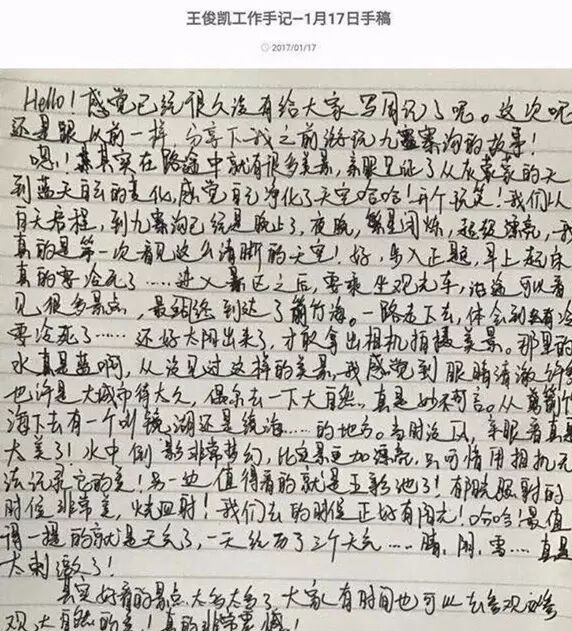 王俊凯工作手记—1月17日手稿
2017/01/17
Hello！感觉已经很久没有给大家写周记了呢。这次呢
还是跟以前一样 分享下我之前游玩九寨沟的故事！
嗯！其实在路途中就有很多美景，亲眼见证了从灰蒙蒙的天
到蓝天白云的变化，感觉自己净化了天空哈哈！开个玩笑！我们从
白天启程，到九寨沟已经是晚上了，夜晚，繁星闪烁，超级漂亮，我
真的是第一次看见这么清晰的天空！好，步入正题，早上起床
真的要冷死了……进入景区之后，要乘坐观光车，沿途可以看
见很多景点，最终到达了箭竹海。一路走下去，体会到
要冷死了……还好太阳出来了，才敢拿出相机拍摄美景。那里的
水真是蓝啊，从没见过这样的美景，我感觉到眼睛清澈
也许是大城市待太久，偶尔去一下大自然，真是妙不可言。从箭竹
海下去有一个叫镜湖还是镜海……的地方。当时没风，亲眼看真是
太美了！水中倒影非常梦幻，比实景更加漂亮，只可惜用相机无
法记录它的美！另一边值得看的就是五彩池了！有阳光照射的
时候非常美，！我们去的时候正好有阳光！哈哈！最值
得一提的就是天气了，一天经历了三个天气……晴，阴，雪……真是
太刺激了！
其实好看的景点太多太多了 大家有时间也可以去参观
观大自然的美！真的非常震撼！